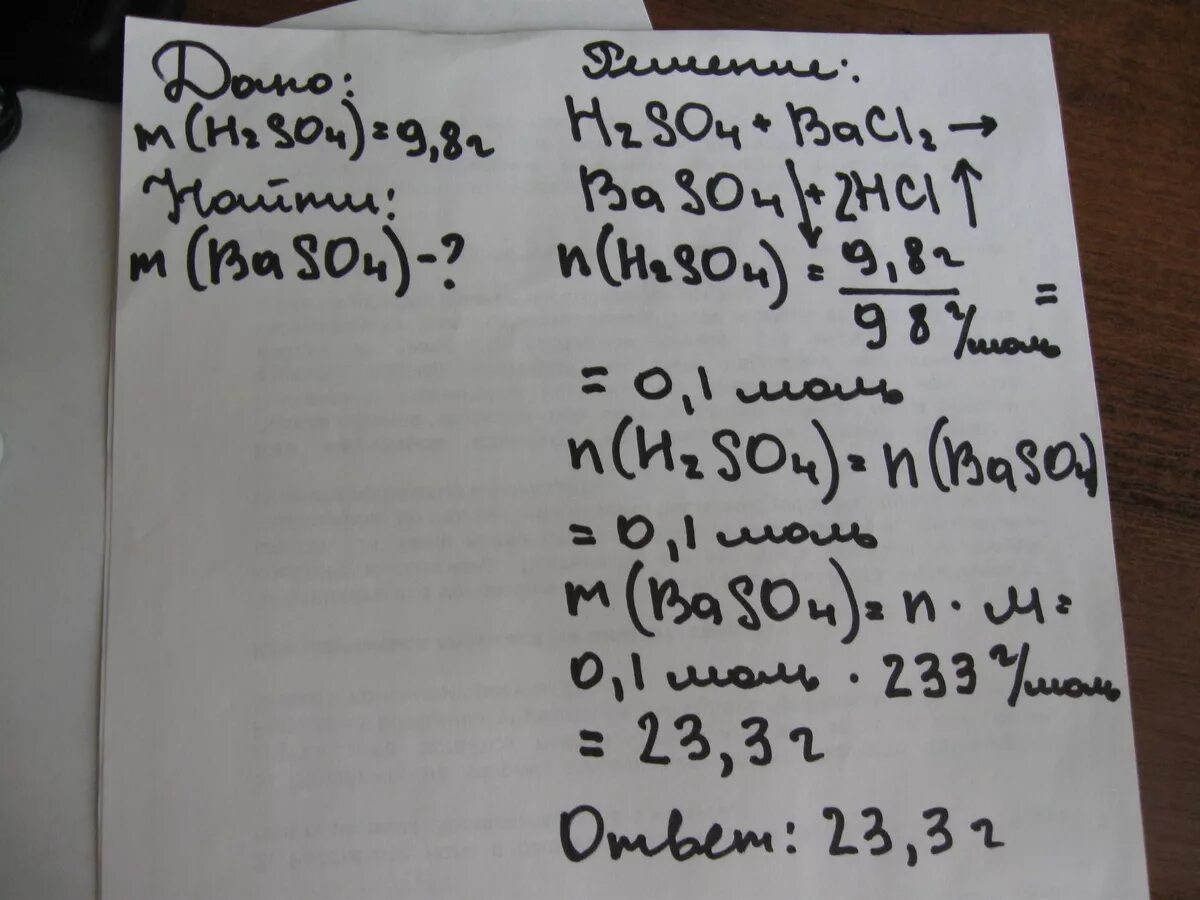 Дано:
m(H₂SO₄)=9,8г
Найти:
m(BaSO₄)-?
Решение:
H₂SO₄+BaCl₂→
BaSO₄↓+2HCl↑
n(H₂SO₄)=9,8г/98г/моль=
=0,1моль
n(H₂SO₄)=n(BaSO₄)
=0,1моль
m(BaSO₄)=n·M=
0,1моль·233г/моль
=23,3г
Ответ: 23,3г